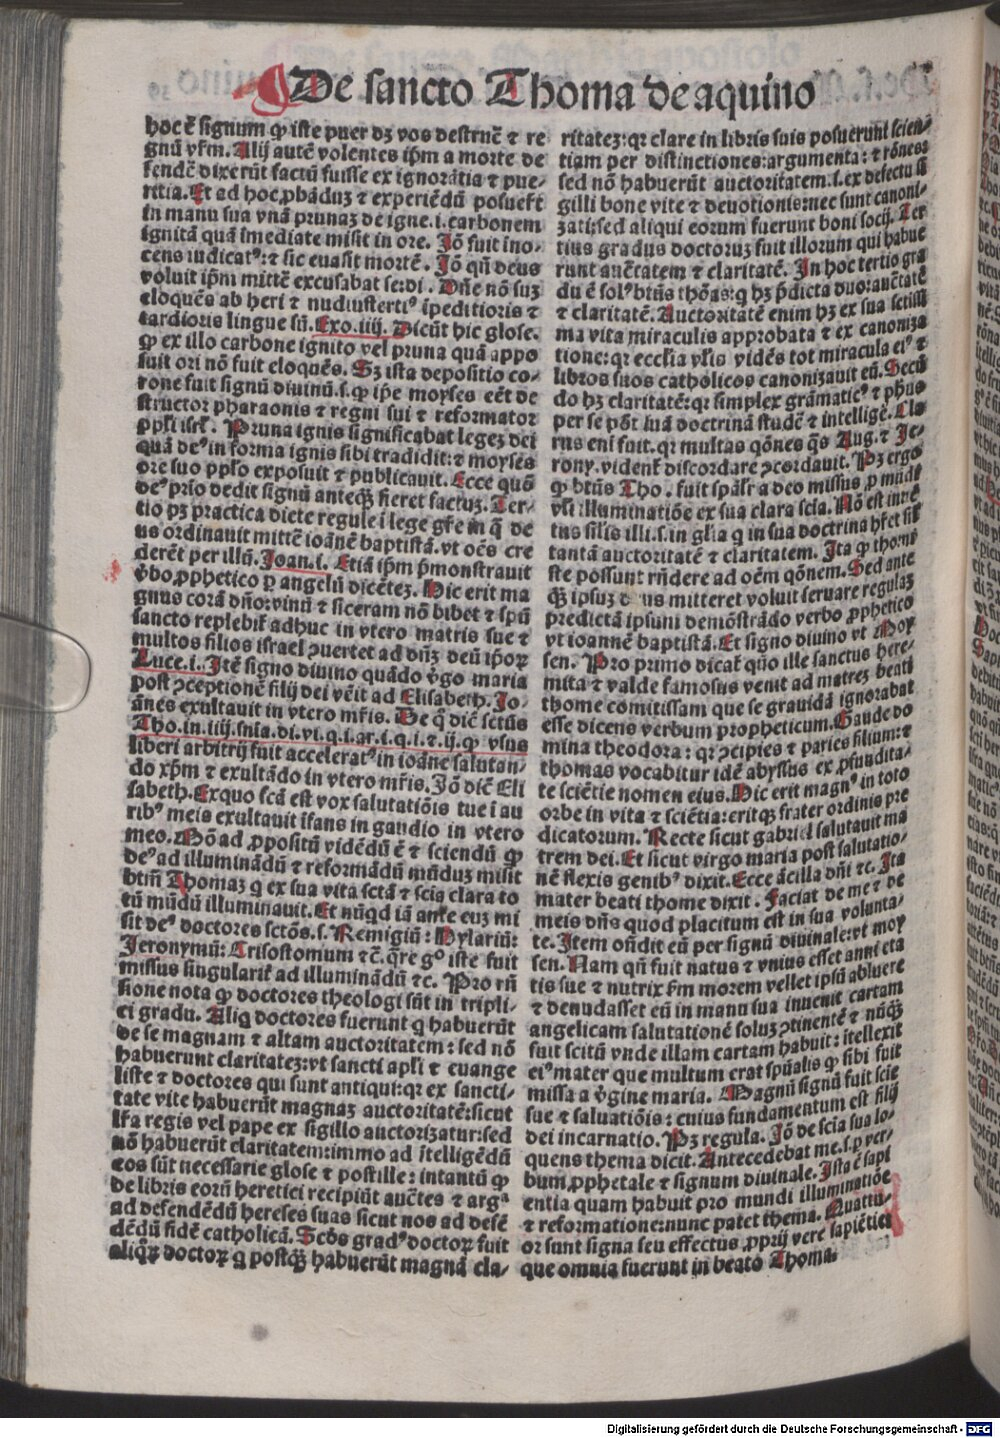 De sancto Thoma de aquino
hoc ē signum ꝙ iste puer dꝫ vos destruē ⁊ re
gnū vr̄m. Alij autē volentes ip̄m a morte de
fendē dixerūt factū fuisse ex ignorātia ⁊ pue-
ritia. Et ad hoc ꝓbāduꝫ ⁊ experiēdū posuer̄t
in manu sua vnā prunaꝫ de igne.i.carbonem
ignitā quā īmediate misit in ore. Jō fuit ino-
cens iudicatꝰ: ⁊ sic euasit mortē. Jō qn̄ deus
voluit ip̄m mittē excusabat se:di. Dn̄e nō suꝫ
eloquēs ab heri ⁊ nudiustertiꝰ īpeditioris ⁊
tardioris lingue sū. Exo.iiij. Dicūt hic glose.
ꝙ ex illo carbone ignito vel pruna quā appo
suit ori nō fuit eloquēs. Sꝫ ista depositio co-
rone fuit signū diuinū.s.ꝙ ip̄e moyses eēt de
structor pharaonis ⁊ regni sui ⁊ reformator
ppl̄i isrl̄. Pruna ignis significabat legeꝫ dei
quā deꝰ in forma ignis sibi tradidit: ⁊ moyses
ore suo pplo exposuit ⁊ publicauit. Ecce quō
deꝰ prio dedit signū anteqꝫ fieret factuꝫ. Ter-
tio pꝫ practica diete regule i lege gr̄e in q̄ de
us ordinauit mittē ioānē baptistā. vt oēs cre
derēt per illū. Joan.i. Etiā ip̄m p̄monstrauit
v̄bo ꝓphetico ꝑ angelū dicētez. Hic erit ma
gnus corā dn̄o: vinū ⁊ siceram nō bibet ⁊ spū
sancto replebit̄ adhuc in vtero matris sue ⁊
multos filios israel ꝯuertet ad dn̄ꝫ deū ip̄oꝝ
Luce.i. Itē signo diuino quādo v̄go maria
post ꝯceptionē filij dei vēit ad Elisabeth. Jo-
ānes exultauit in vtero mr̄is. De q̄ dic̄ sctūs
Tho.in.iiij.snīa.di.vi.q.i.ar.i.q.i.⁊.ij.ꝙ vsus
liberi arbitrij fuit acceleratꝰ in ioāne salutan-
do xp̄m ⁊ exultādo in vtero mr̄is. Jō dic̄ Eli
sabeth. Exquo scā est vox salutatiōis tue ī au
ribꝰ meis exultauit īfans in gaudio in vtero
meo. Mō ad ꝓpositū vidēdū ē ⁊ sciendū ꝙ
deꝰ ad illuminādū ⁊ reformādū mūduꝫ misit
btm̄ Thomaꝫ q ex sua vita sctā ⁊ scīa clara to
tū mūdū illuminauit. Et nūqd iā ante euꝫ mi
sit deꝰ doctores sctōs.s. Remigiū: Hylariū:
Jeronymū: Crisostomum ⁊c̄. qre gͦ iste fuit
missus singularit̄ ad illuminādū ⁊c. Pro rn̄
sione nota ꝙ doctores theologi sūt in tripli-
ci gradu. Aliq doctores fuerunt q habuerūt
de se magnam ⁊ altam auctoritatem: sed nō
habuerunt claritateꝫ: vt sancti apl̄i ⁊ euange
liste ⁊ doctores qui sunt antiqui: qꝛ ex sancti-
tate vite habuerūt magnaꝫ auctoritatē: sicut
lr̄a regis vel pape ex sigillo auctorizatur: sed
nō habuerūt claritatem: immo ad ītelligēdū
eos sūt necessarie glose ⁊ postille: intantū ꝙ
de libris eorū heretici recipiūt auctēs ⁊ argᵃ
ad defendēdū hereses suas sicut nos ad defē
dēdū fidē catholicā. Scd̄s gradꝰ doctoꝝ fuit
aliqͦꝝ doctoꝝ q postqꝫ habuerūt magnā cla-
ritatez: qꝛ clare in libris suis posuerunt scien-
tiam per distinctiones: argumenta: ⁊ rōnes
sed nō habuerūt auctoritatem.s.ex defectu si
gilli bone vite ⁊ deuotionis: nec sunt canoni-
zati: sed aliqui eorum fuerunt boni socij. Ter
tius gradus doctoruꝫ fuit illorum qui habue
runt auctatem ⁊ claritatē. In hoc tertio gra
du ē solꝰ btūs thōas: q hꝫ p̄dicta duo: auctatē
⁊ claritatē. Auctoritatē enim hꝫ ex sua sctissi
ma vita miraculis approbata ⁊ ex canoniza
tione: qꝛ eccl̄ia vl̄is vidēs tot miracula eiꝰ ⁊
libros suos catholicos canonizauit eū. Secū
do hꝫ claritatē: qꝛ simplex grāmaticꝰ ⁊ ph̄us
per se pōt suā doctrinā studē ⁊ intelligē. Cla
rus eni fuit. qꝛ multas qōnes q̄s Aug. ⁊ Je-
rony. vident̄ discordare ꝯcordauit. Pꝫ ergo
ꝙ btūs Tho. fuit spāl̄r a deo missus ꝓ mūdi
vl̄i illuminatiōe ex sua clara scīa. Nō est inuē
tus silis illi.s.in gl̄ia q in sua doctrina hr̄et sil̄
tantā auctoritatē ⁊ claritatem. Ita ꝙ thomi
ste possunt rn̄dere ad oēm qōnem. Sed ante
qꝫ ipsuꝫ deus mitteret voluit seruare regulaꝫ
predictā ipsum demōstrādo verbo ꝓphetico
vt ioannē baptistā. Et signo diuino vt Moy
sen. Pro primo dicat̄ quō ille sanctus here-
mita ⁊ valde famosus venit ad matreꝫ beati
thome comitissam que se grauidā ignorabat
esse dicens verbum propheticum. Gaude do
mina theodora: qꝛ ꝯcipies ⁊ paries filium: ⁊
thomas vocabitur idē abyssus ex ꝓfundita-
te sciētie nomen eius. Hic erit magnꝰ in toto
orbe in vita ⁊ sciētia: eritqꝫ frater ordinis pre
dicatorum. Recte sicut gabriel salutauit ma
trem dei. Et sicut virgo maria post salutatio-
nē flexis genibꝰ dixit. Ecce ācilla dn̄i ⁊c. Ita
mater beati thome dixit. Faciat de me ⁊ de
meis dn̄s quod placitum est in sua volunta-
te. Item on̄dit eū per signū diuinale: vt moy
sen. Nam qn̄ fuit natus ⁊ vnius esset anni eta
tis sue ⁊ nutrix ẜm morem vellet ipsū abluere
⁊ denudasset eū in manu sua inuenit cartam
angelicam salutationē soluꝫ ꝯtinentē ⁊ nūqꝫ
fuit scitū vnde illam cartam habuit: itellexit
eiꝰ mater que multum erat spūalis ꝙ sibi fuit
missa a v̄gine maria. Magnū signū fuit scie
sue ⁊ saluatiōis: cuius fundamentum est filij
dei incarnatio. Pꝫ regula. Jō de scīa sua lo-
quens thema dicit. Antecedebat me.s.ꝑ ver-
bum ꝓphetale ⁊ signum diuinale. Ista ē sapi
entia quam habuit pro mundi illuminatiōe
⁊ reformatione: nunc patet thema. Quattu-
or sunt signa seu effectus ꝓprij vere sapiētie:
que omnia fuerunt in beato Thoma:
Digitalisierung gefördert durch die Deutsche Forschungsgemeinschaft - DFG